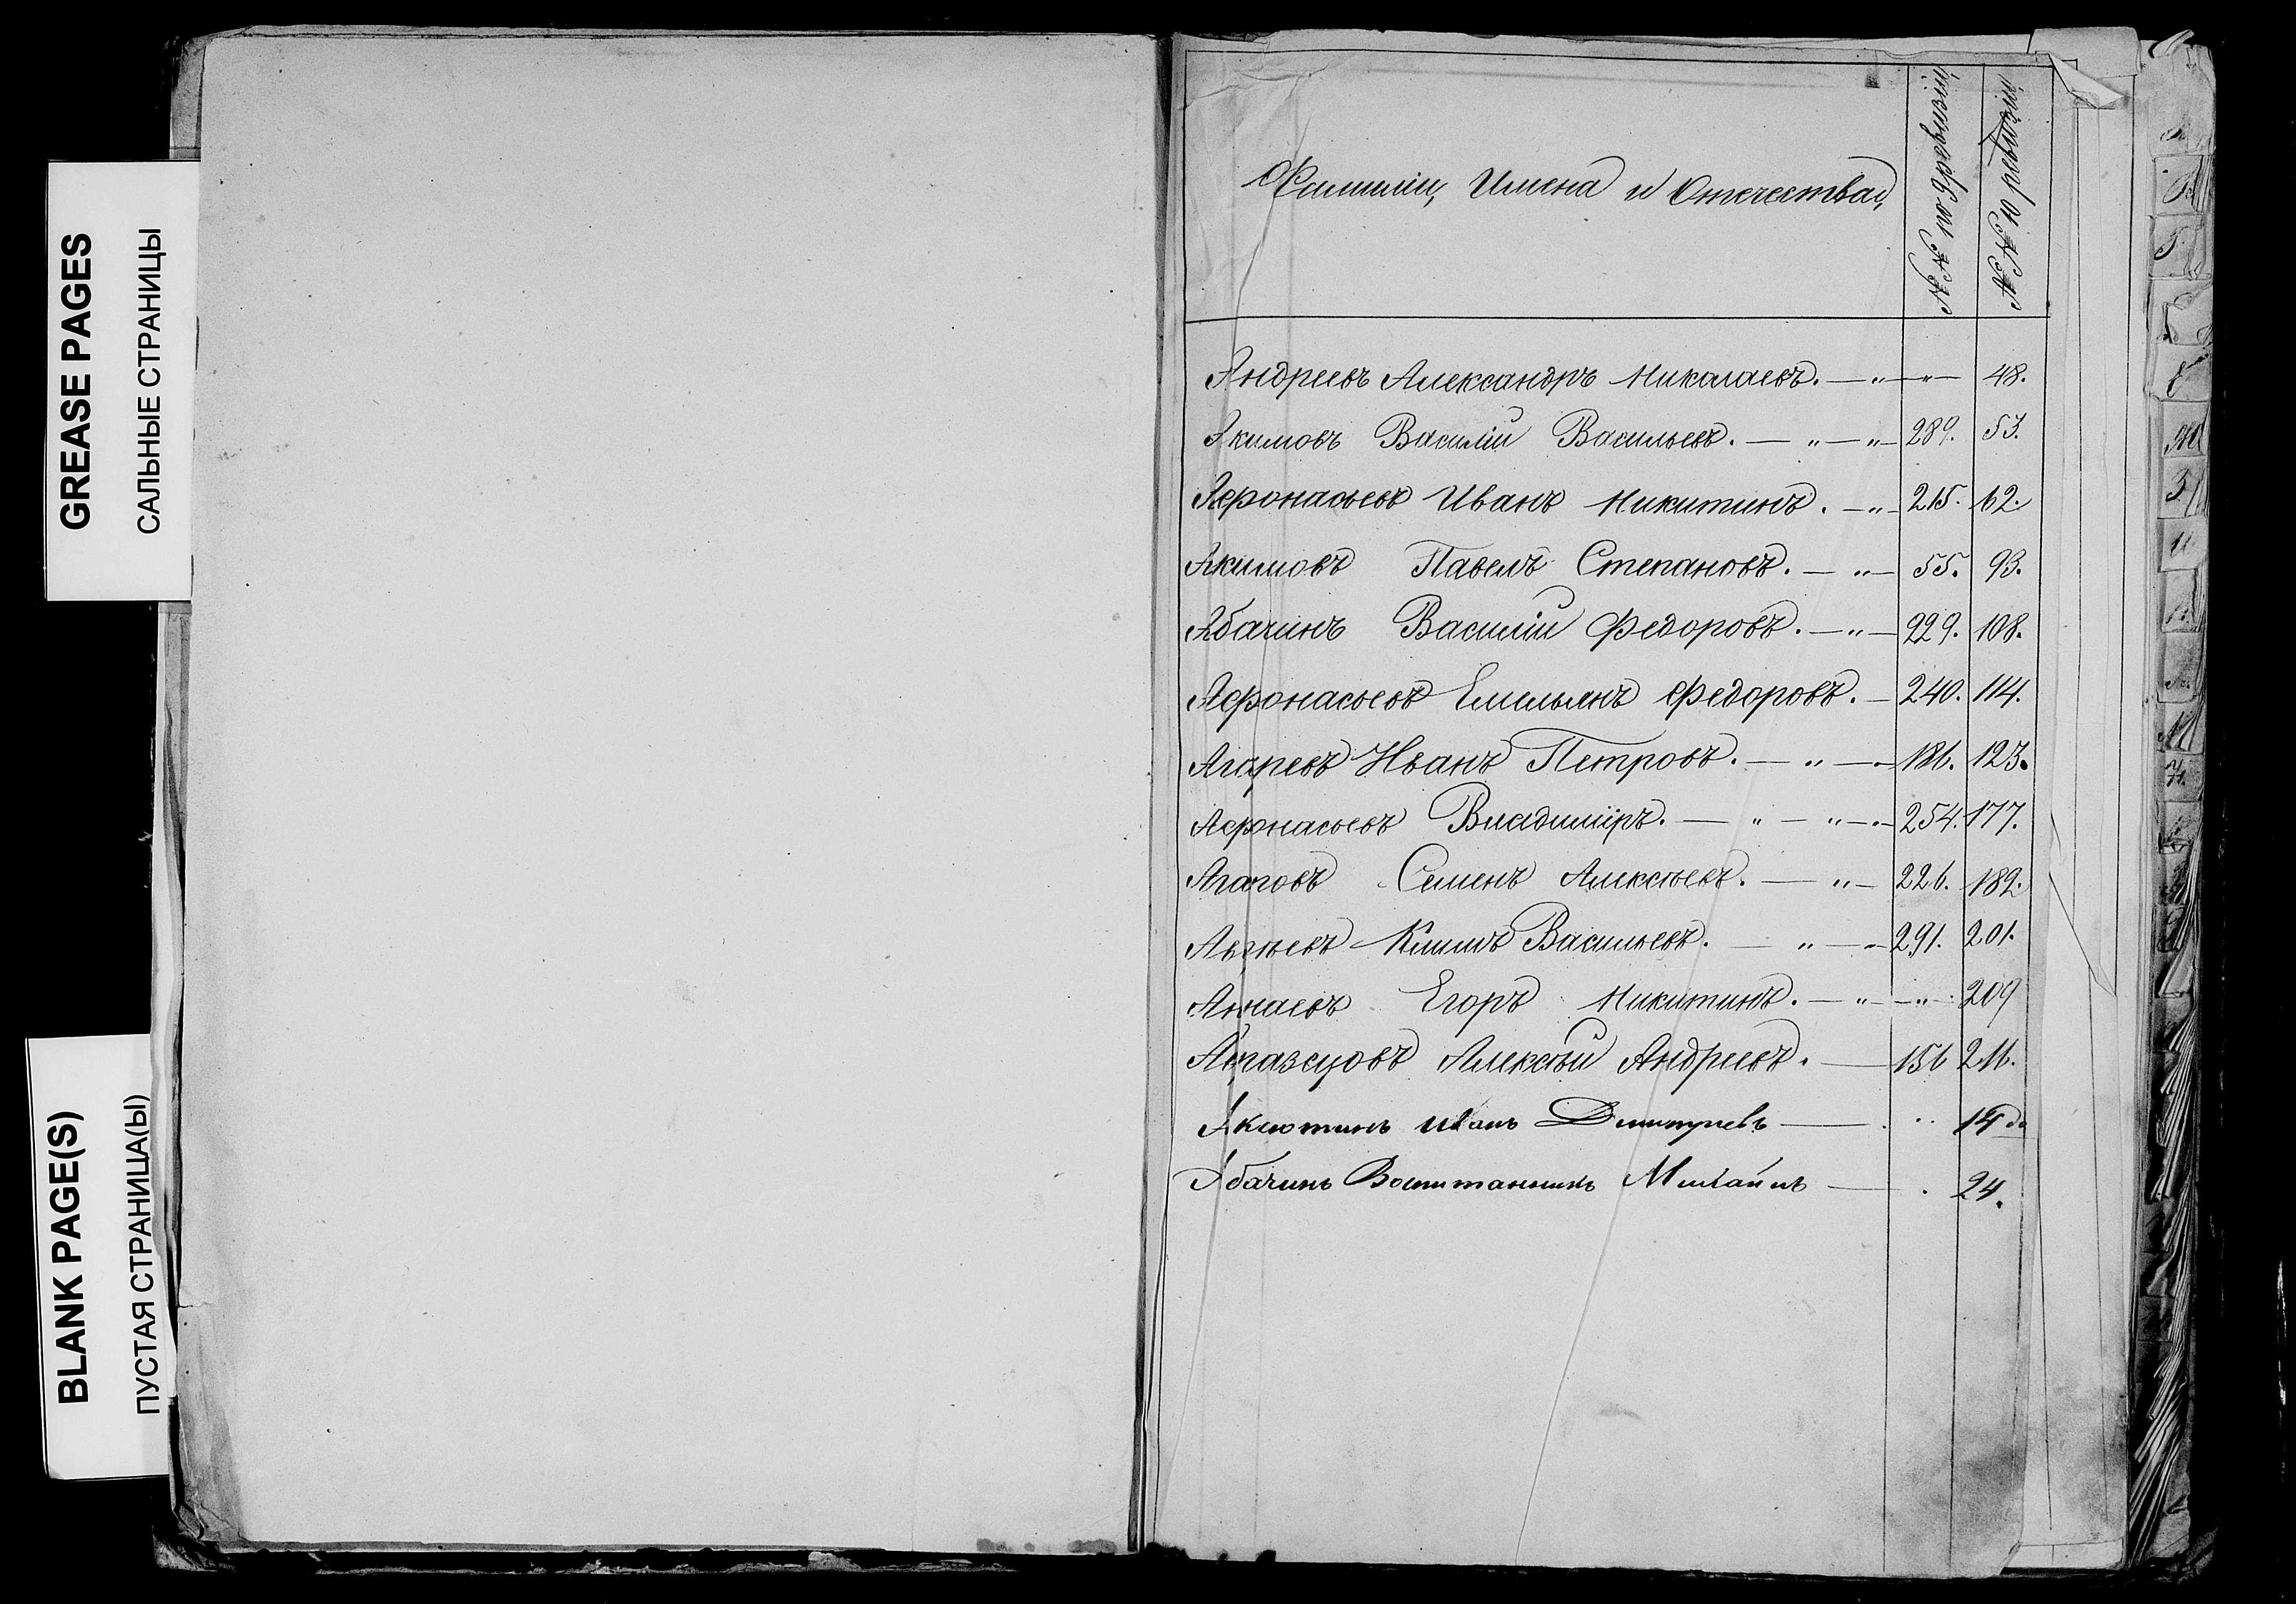 GREASE PAGES
САЛЬНЫЕ СТРАНИЦЫ
BLANK PAGE(S)
ПУСТАЯ СТРАНИЦА(Ы)
Фамиліи, Имена и Отчества,
№№ по 9 ревизіи,
№№ 10 ревизіи,
Андреевъ Александръ Николаевъ. — " — " — 48.
Акимовъ Василіи Васильевъ. — " — " — 289. 53.
Афонасьевъ Иванъ Никитинъ. — " — 215. 62.
Акимовъ Павелъ Степановъ. — " — 55. 93.
Абачинъ Василіи Федоровъ. — " — 229. 108.
Афонасьевъ Емельянъ Федоровъ. — 240. 114.
Агаревъ Иванъ Петровъ. — " — 186. 123.
Афонасьевъ Владиміръ. — " — " — 254. 177.
Агаповъ Семенъ Алексѣевъ. — " — 226. 182.
Климъ Васильевъ. — " — 291. 201.
Егоръ Никитинъ. — " — " 209
Алексѣй Андреевъ. — 156 216.
Акиотинъ Иванъ Дмитриевъ — 14
Абачинъ Воспитанникъ Михаилъ — 24.
Г
Е
Ж
З
И
М
Н